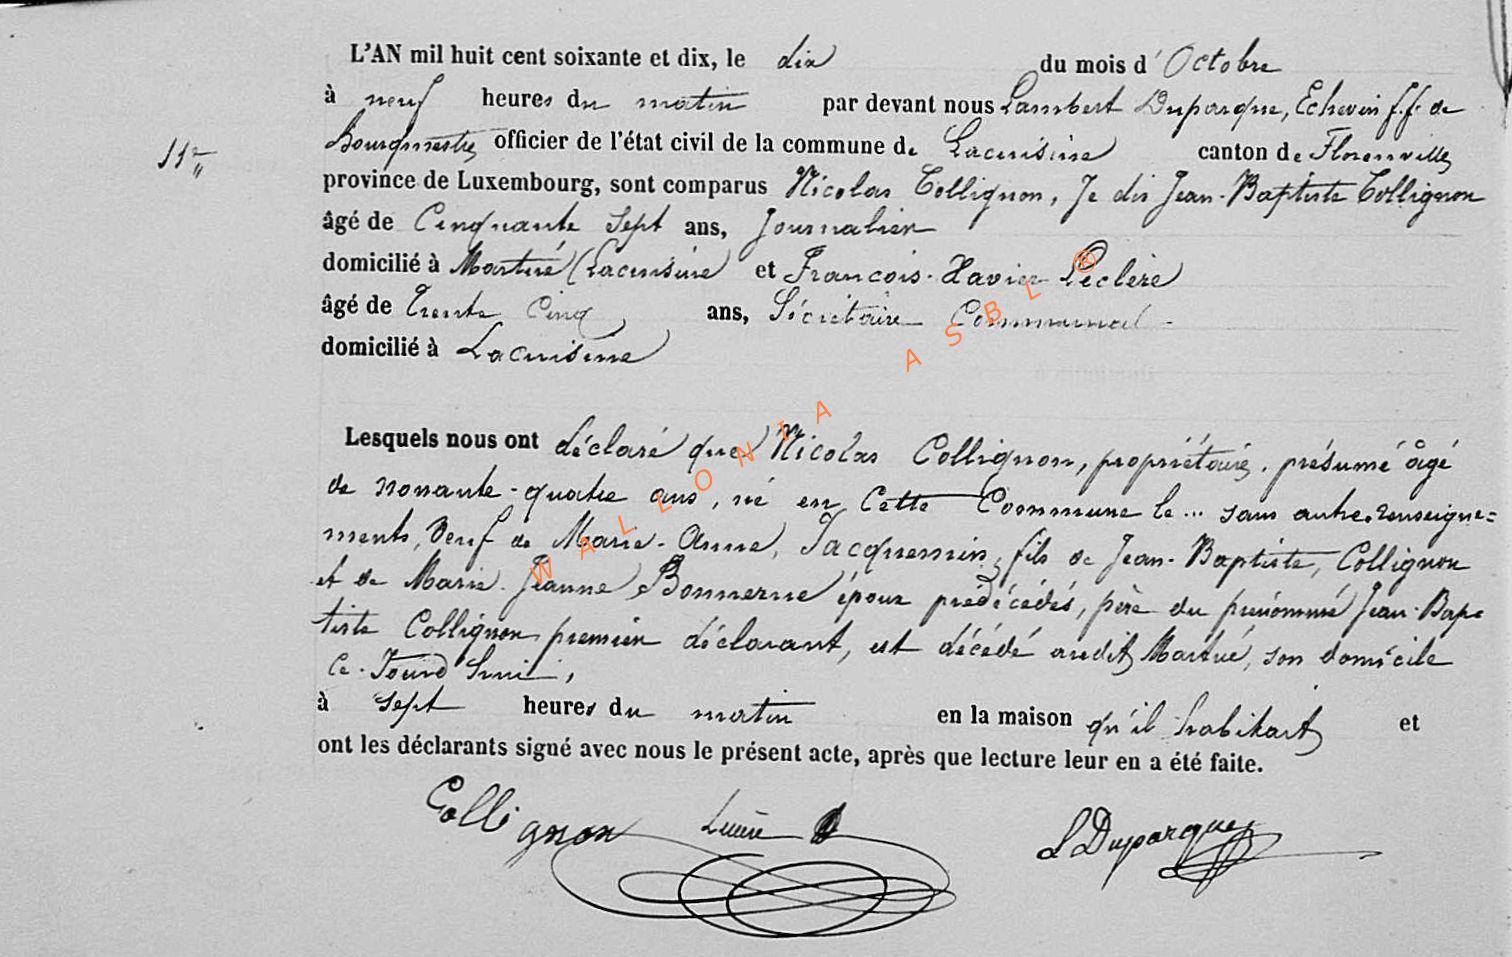 L'AN mil huit cent soixante et dix, le dix du mois d'Octobre
à neuf heures du matin par devant nous Lambert Duparque, Echevin f.f. de
Bourgmestre officier de l'état civil de la commune de Lacuisine canton de Florenville
province de Luxembourg, sont comparus Nicolas Collignon, Je dis Jean-Baptiste Collignon
âgé de Cinquante Sept ans, Journalier
domicilié à Martué (Lacuisine) et François-Xavier Leclère
âgé de Trente Cinq ans, Sécrétaire Communal
domicilié à Lacuisine
Lesquels nous ont déclaré que Nicolas Collignon, propriétaire, présumé âgé
de nonante-quatre ans, né en Cette Commune le... sans autre renseigne=
ments, Veuf de Marie-Anne Jacquemin, fils de Jean-Baptiste, Collignon
et de Marie-Jeanne époux prédécédés, père du prénommé Jean-Bap=
tiste Collignon premier déclarant, est décédé audit Martué, son domicile
à sept heures du matin en la maison qu'il habitait et
ont les déclarants signé avec nous le présent acte, après que lecture leur en a été faite.
Collignon
L Duparque
WALLONIA ASBL ®